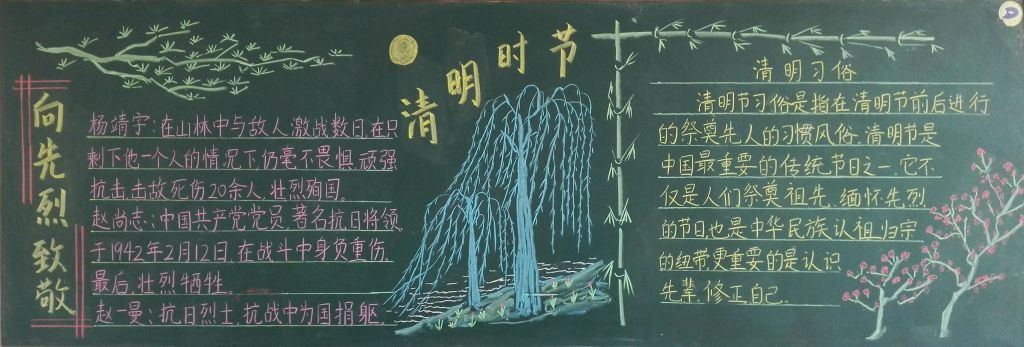 向先烈致敬
杨靖宇:在山林中与敌人激战数日,在只
剩下他一个人的情况下仍毫不畏惧,顽强
抗击,击敌死伤20余人,壮烈殉国。
赵尚志:中国共产党党员,著名抗日将领,
于1942年2月12日,在战斗中身负重伤,
最后,壮烈牺牲。
赵一曼:抗日烈士,抗战中为国捐躯。
清明时节
清明习俗
清明节习俗是指在清明节前后进行
的祭奠先人的习惯风俗,清明节是
中国最重要的传统节日之一,它不
仅是人们祭奠祖先、缅怀先烈
的节日,也是中华民族认祖归宗
的纽带,更重要的是认识
先辈,修正自己。